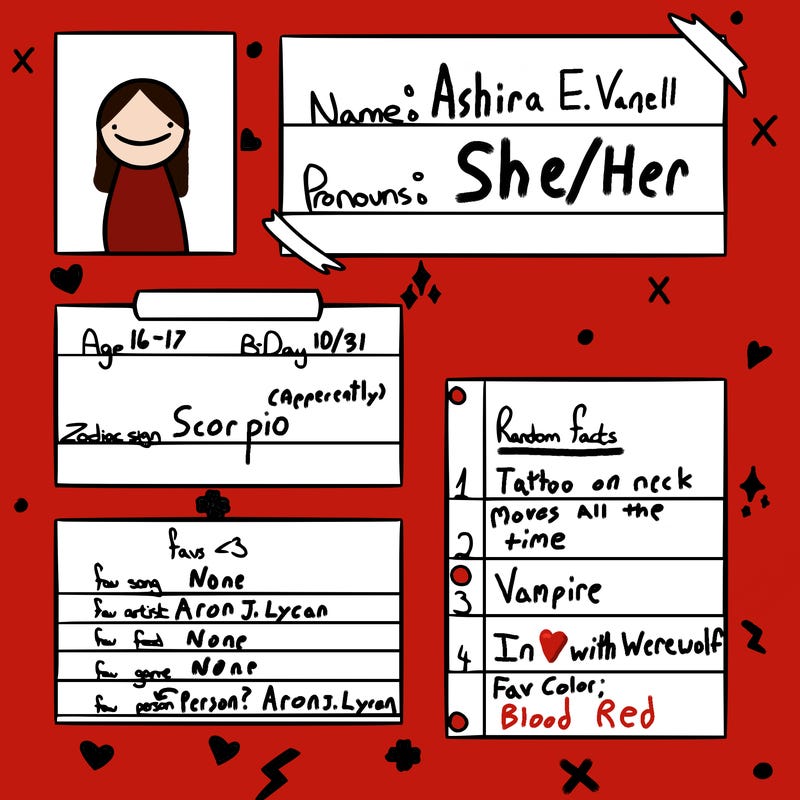 Name: Ashira E. Vanell
Pronouns: She/Her
Age 16-17 B-Day 10/31
(Apperently)
Zodiac sign Scorpio
favs <3
fav song None
fav artist Aron J. Lycan
fav food None
fav game None
fav person Person? Aron J. Lycan
Random facts
1 Tattoo on neck
2 Moves All the
time
3 Vampire
4 In ❤️ with Werewolf
Fav Color;
Blood Red